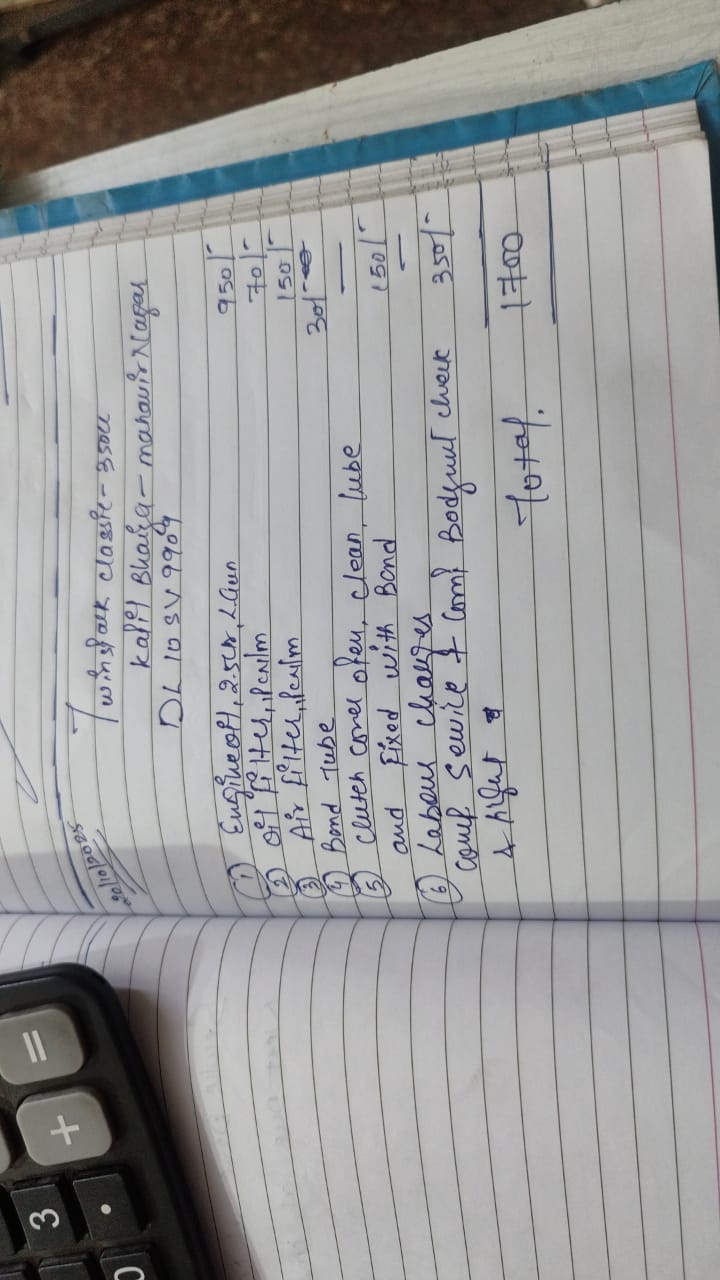 20/10/2025
Twinspark classic - 350cc
Kapil Bhaiya - mahavir Nagar
DL 10 SV 9909
① Engine oil, 2.5Ltr, L.Gun 950/-
② Oil filter, 1Pcs/m 70/-
③ Air filter, 1Pcs/m 150/-
④ Bond Tube 30/-
⑤ Clutch cover open, clean, lube —
and fixed with Bond 150/-
⑥ Labour charges —
comp service & comp Bodynut check 350/-
&
Total. 1700
=
+
3
.
0